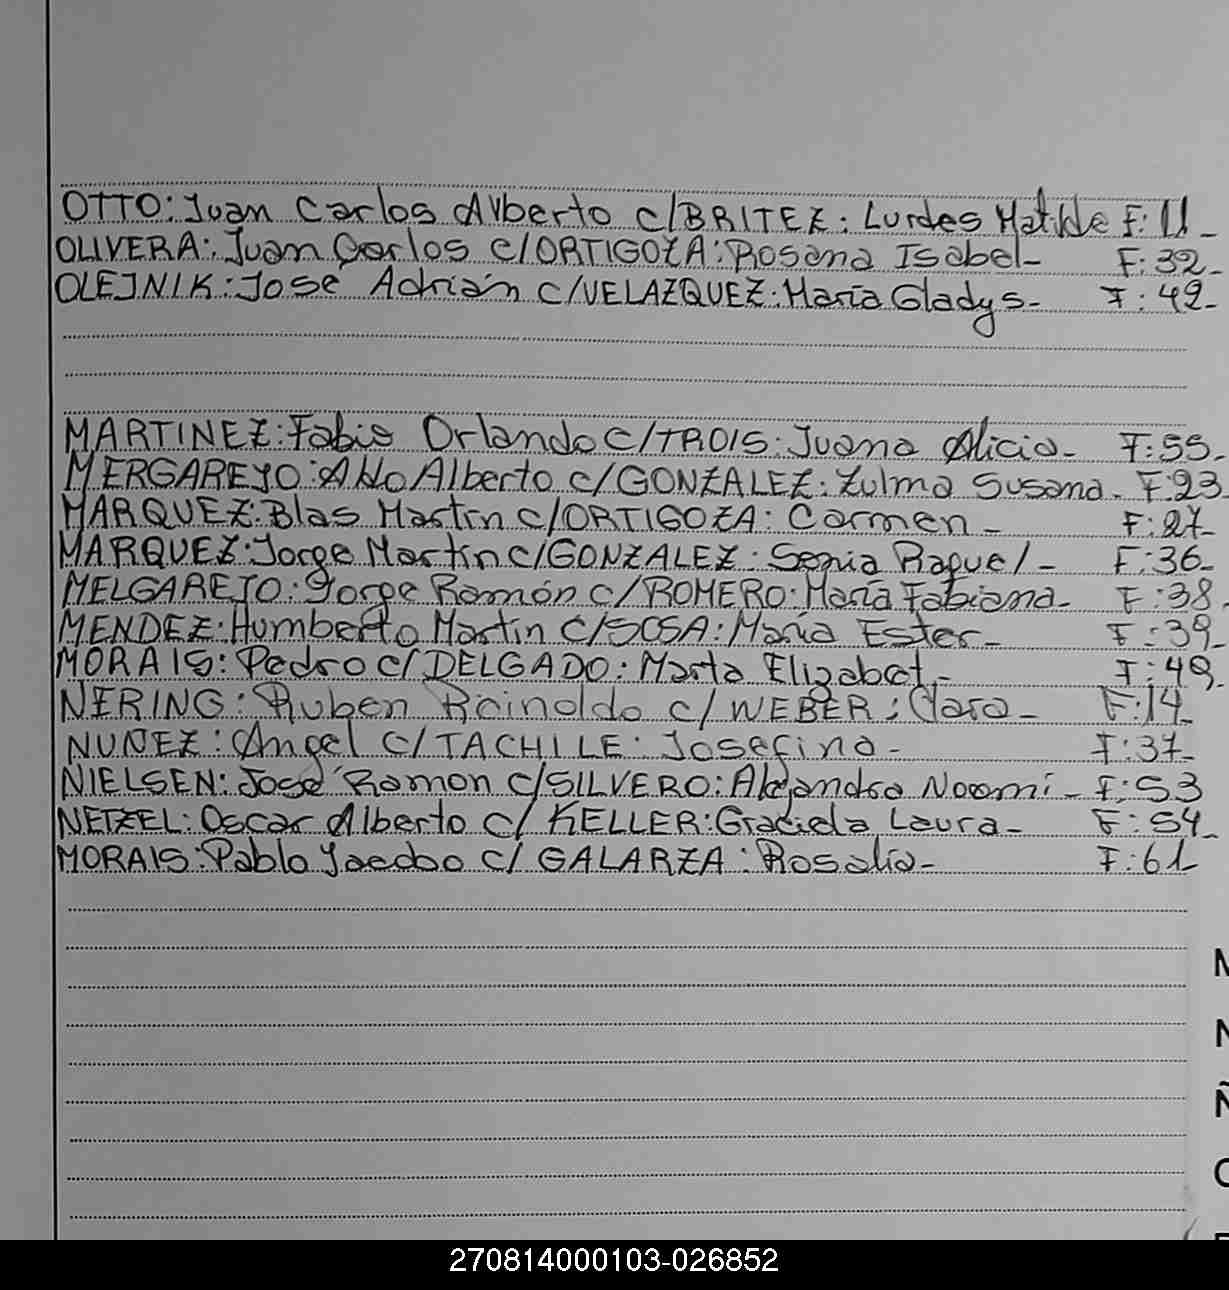 OTTO: Juan Carlos Alberto c/BRITEZ: Lurdes Matilde F: 11-
OLIVERA: Juan Carlos c/ORTIGOZA: Rosana Isabel- F: 32-
OLEJNIK: José Adrián c/VELAZQUEZ: María Gladys- F: 42-
MARTINEZ: Fabio Orlando c/TROIS: Juana Alicia- F: 55-
MERGAREJO: Aldo Alberto c/GONZALEZ: Zulma Susana- F: 23
MARQUEZ: Blas Martín c/ORTIGOZA: Carmen- F: 27-
MARQUEZ: Jorge Martín c/GONZALEZ: Sonia Raquel- F: 36-
MELGAREJO: Jorge Ramón c/ROMERO: María Fabiana- F: 38
MENDEZ: Humberto Martín c/SOSA: María Ester- F: 39-
MORAIS: Pedro c/DELGADO: Marta Elizabet- F: 49-
NERING: Ruben Reinoldo c/WEBER: Clara- F: 14-
NUÑEZ: Angel c/TACHILE: Josefina- F: 37-
NIELSEN: José Ramon c/SILVERO: Alejandra Noemi- F: 53
NETZEL: Oscar Alberto c/KELLER: Graciela Laura- F: 54-
MORAIS: Pablo Jacobo c/GALARZA: Rosalia- F: 61
M
N
Ñ
O
270814000103-026852